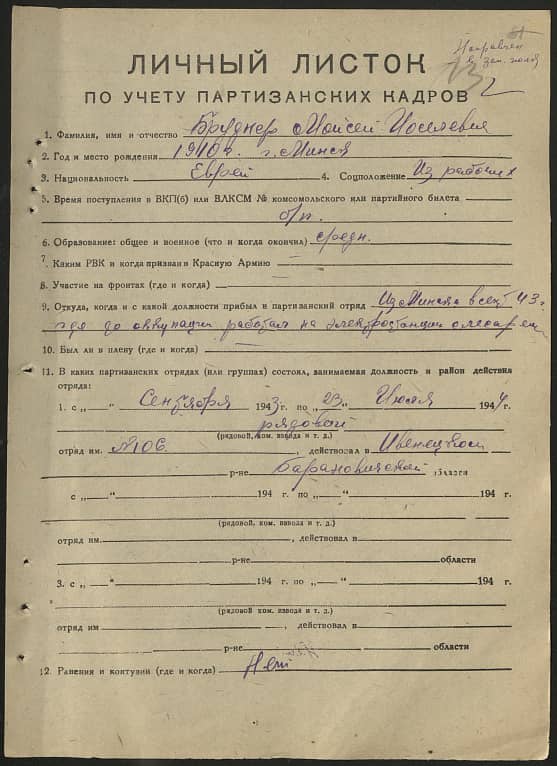 Направлен
в зап. полк
ЛИЧНЫЙ ЛИСТОК
ПО УЧЕТУ ПАРТИЗАНСКИХ КАДРОВ
1. Фамилия, имя и отчество Бруднер Мойсей Иоселевич
2. Год и место рождения 1910г. г. Минск
3. Национальность Еврей 4. Соцположение Из рабочих
5. Время поступления в ВКП(б) или ВЛКСМ № комсомольского или партийного билета
б/п.
6. Образование: общее и военное (что и когда окончил) средн.
7. Каким РВК и когда призван в Красную Армию
8. Участие на фронтах (где и когда)
9. Откуда, когда и с какой должности прибыл в партизанский отряд Из Минска в сент 43г.
где до оккупации работал на электростанции слесарем
10. Был ли в плену (где и когда)
11. В каких партизанских отрядах (или группах) состоял, занимаемая должность и район действия
отряда:
1. с „ “ Сентября 1943г. по „23“ Июля 1944г.
рядовой
(рядовой, ком. взвода и т. д.)
отряд им. №106 , действовал в Ивенецком
р-не Барановичской области
с „ “ 194 г. по „ “ 194 г.
(рядовой, ком. взвода и т. д.)
отряд им. , действовал в
р-не области
3. с „ “ 194 г. по „ “ 194 г.
(рядовой, ком. взвода и т. д.)
отряд им , действовал в
р-не области
12. Ранения и контузии (где и когда) Нет